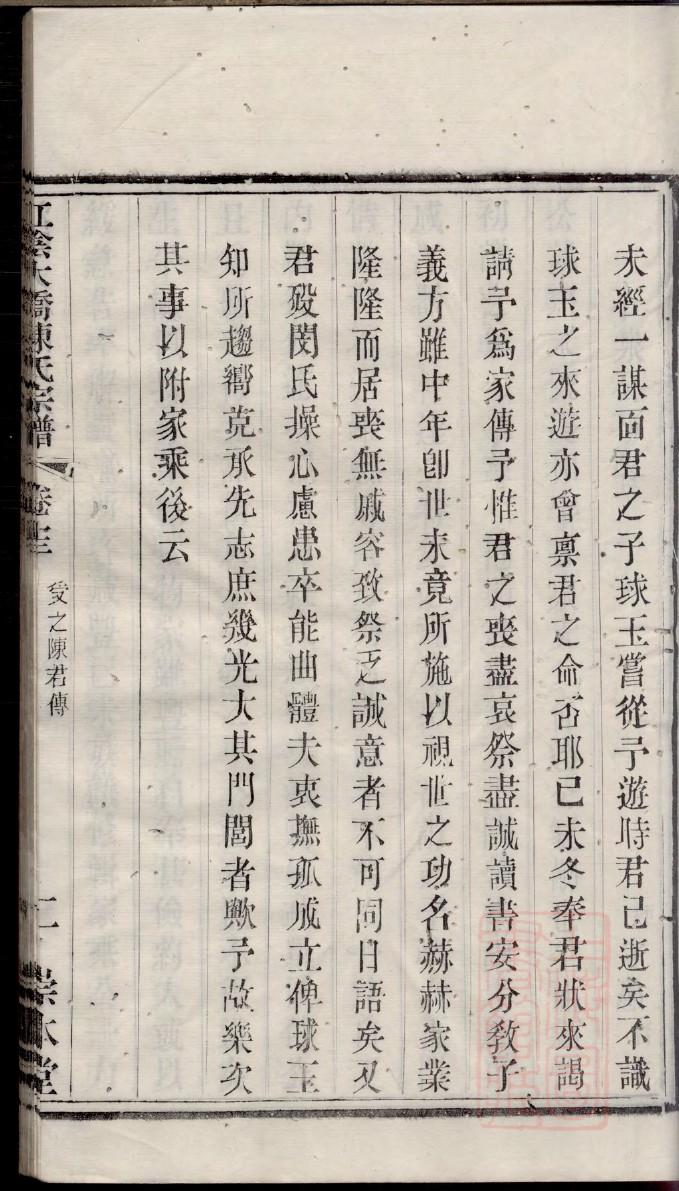 未經一謀面君之子球玉嘗從予遊時君已逝矣不識
球玉之來遊亦曾禀君之命否耶已未冬奉君狀來謁
請予爲家傳予惟君之喪盡哀祭盡誠讀書安分敎子
義方雖中年卽世未竟所施以視世之功名赫赫家業
隆隆而居喪無戚容致祭乏誠意者不可同日語矣又
君歿閔氏操心慮患卒能曲體夫衷撫孤成立俾球玉
知所趨嚮克承先志庶幾光大其門閭者歟予故樂次
其事以附家乘後云
江陰大橋陳氏宗譜
卷
受之陳君傳
宗本堂